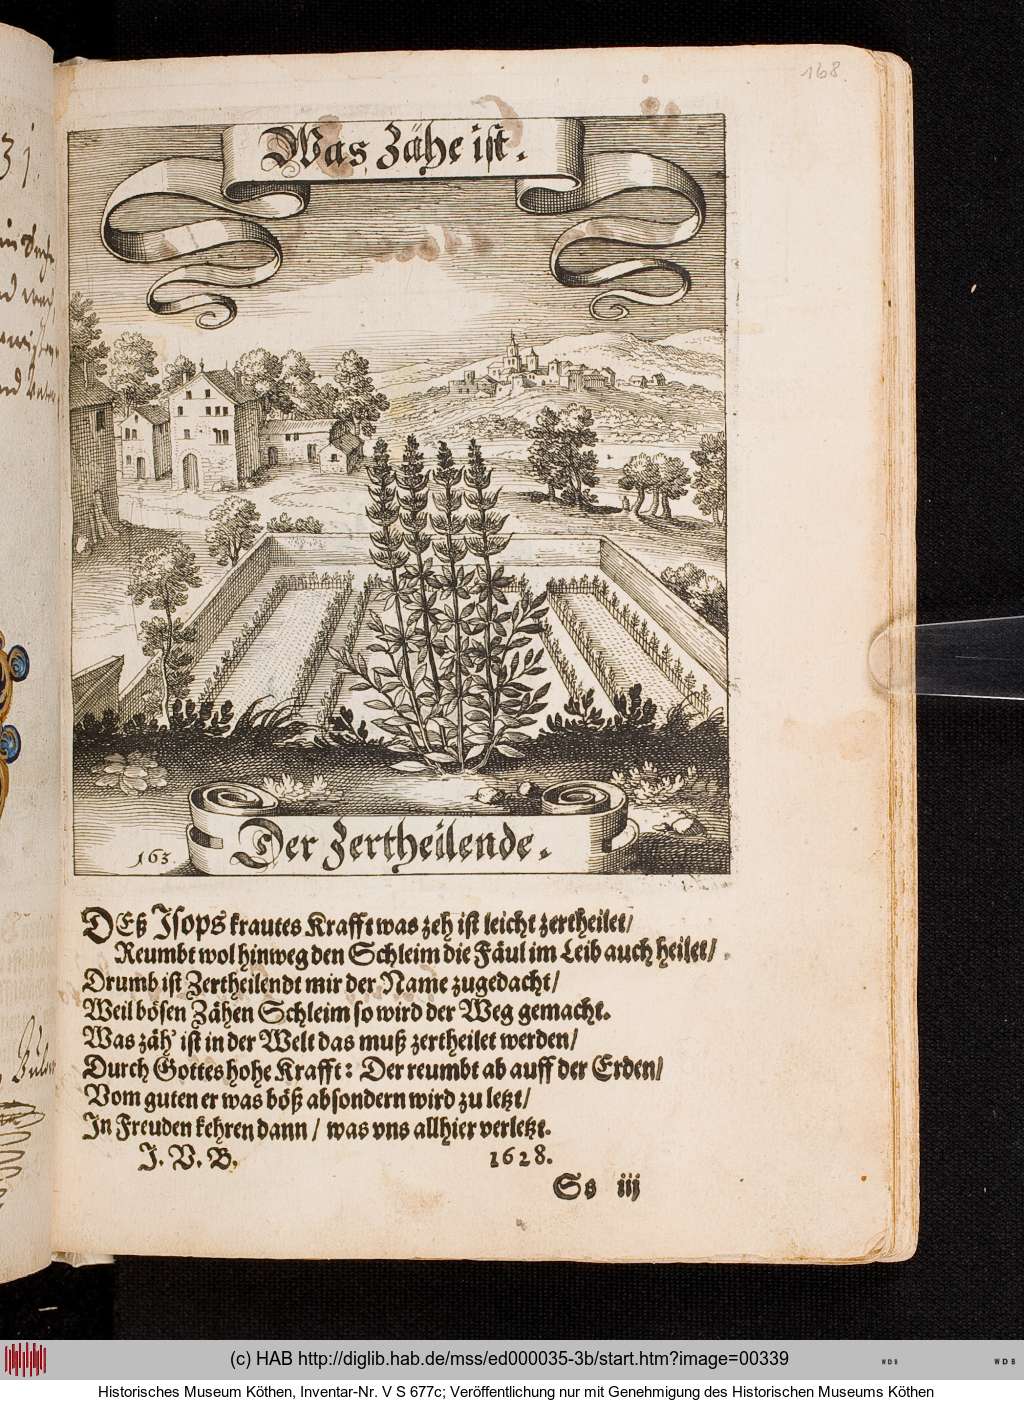 168.
Was Zähe ist.
163.
Der Zertheilende.
DEß Jsops krautes Krafft was zeh ist leicht zertheilet/
Reumbt wol hinweg den Schleim die Fäul im Leib auch heilet/
Drumb ist Zertheilendt mir der Name zugedacht/
Weil bösen Zähen Schleim so wird der Weg gemacht.
Was zäh' ist in der Welt das muß zertheilet werden/
Durch Gottes hohe Krafft: Der reumbt ab auff der Erden/
Vom guten er was böß absondern wird zu letzt/
In Freuden kehren dann / was vns allhier verletzt.
J. V. B. 1628.
Ss iij
(c) HAB http://diglib.hab.de/mss/ed000035-3b/start.htm?image=00339
WDB
WDB
Historisches Museum Köthen, Inventar-Nr. V S 677c; Veröffentlichung nur mit Genehmigung des Historischen Museums Köthen